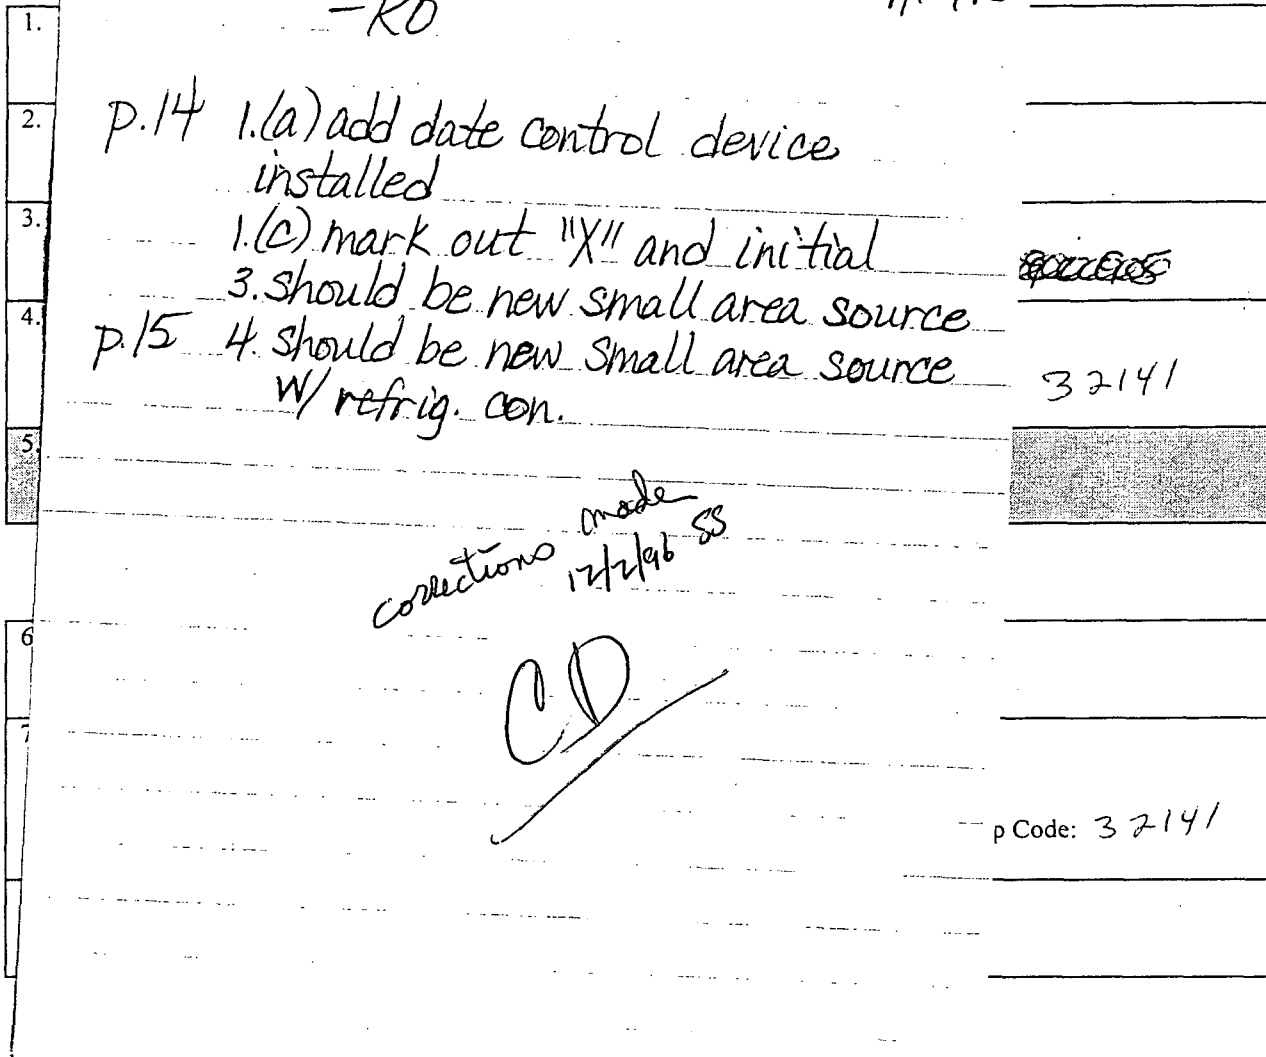 1.
-RO
2.
p.14 1.(a) add date control device
installed
3.
1.(c) mark out "X" and initial
3. should be new small area source
4.
p.15 4. should be new small area source
w/ refrig. con.
32141
5.
corrections made
12/2/96 SS
6
CD
7
p Code: 32141